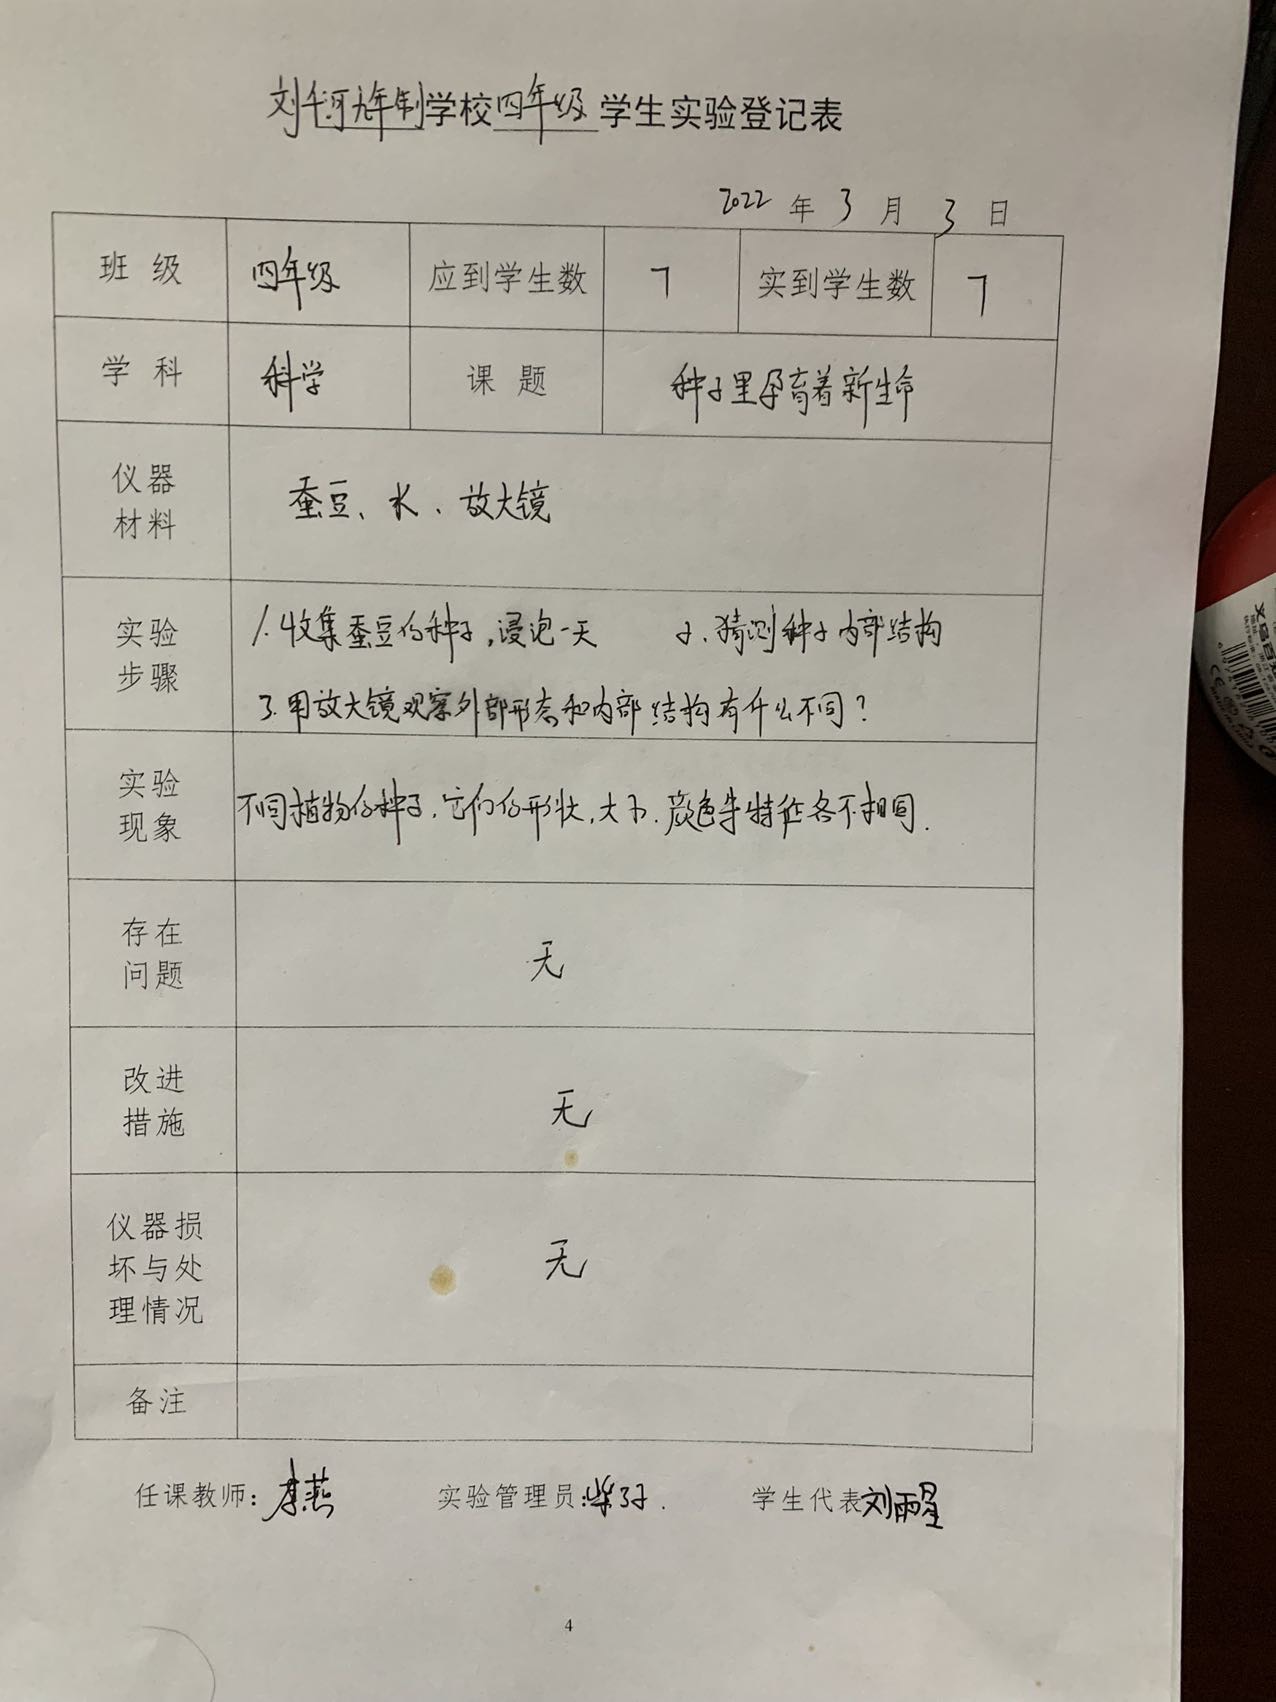 刘千河九年制学校四年级学生实验登记表
2022 年 3 月 3 日
班 级 四年级 应到学生数 7 实到学生数 7
学 科 科学 课 题 种子里孕育着新生命
仪器
材料
蚕豆、水、放大镜
实验
步骤
1.收集蚕豆的种子,浸泡一天 2.猜测种子内部结构
3.用放大镜观察外部形态和内部结构有什么不同?
实验
现象
不同植物的种子,它们的形状,大小、颜色等特征各不相同.
存在
问题
无
改进
措施
无
仪器损
坏与处
理情况
无
备注
任课教师: 李燕 实验管理员: 学生代表 刘雨星
4